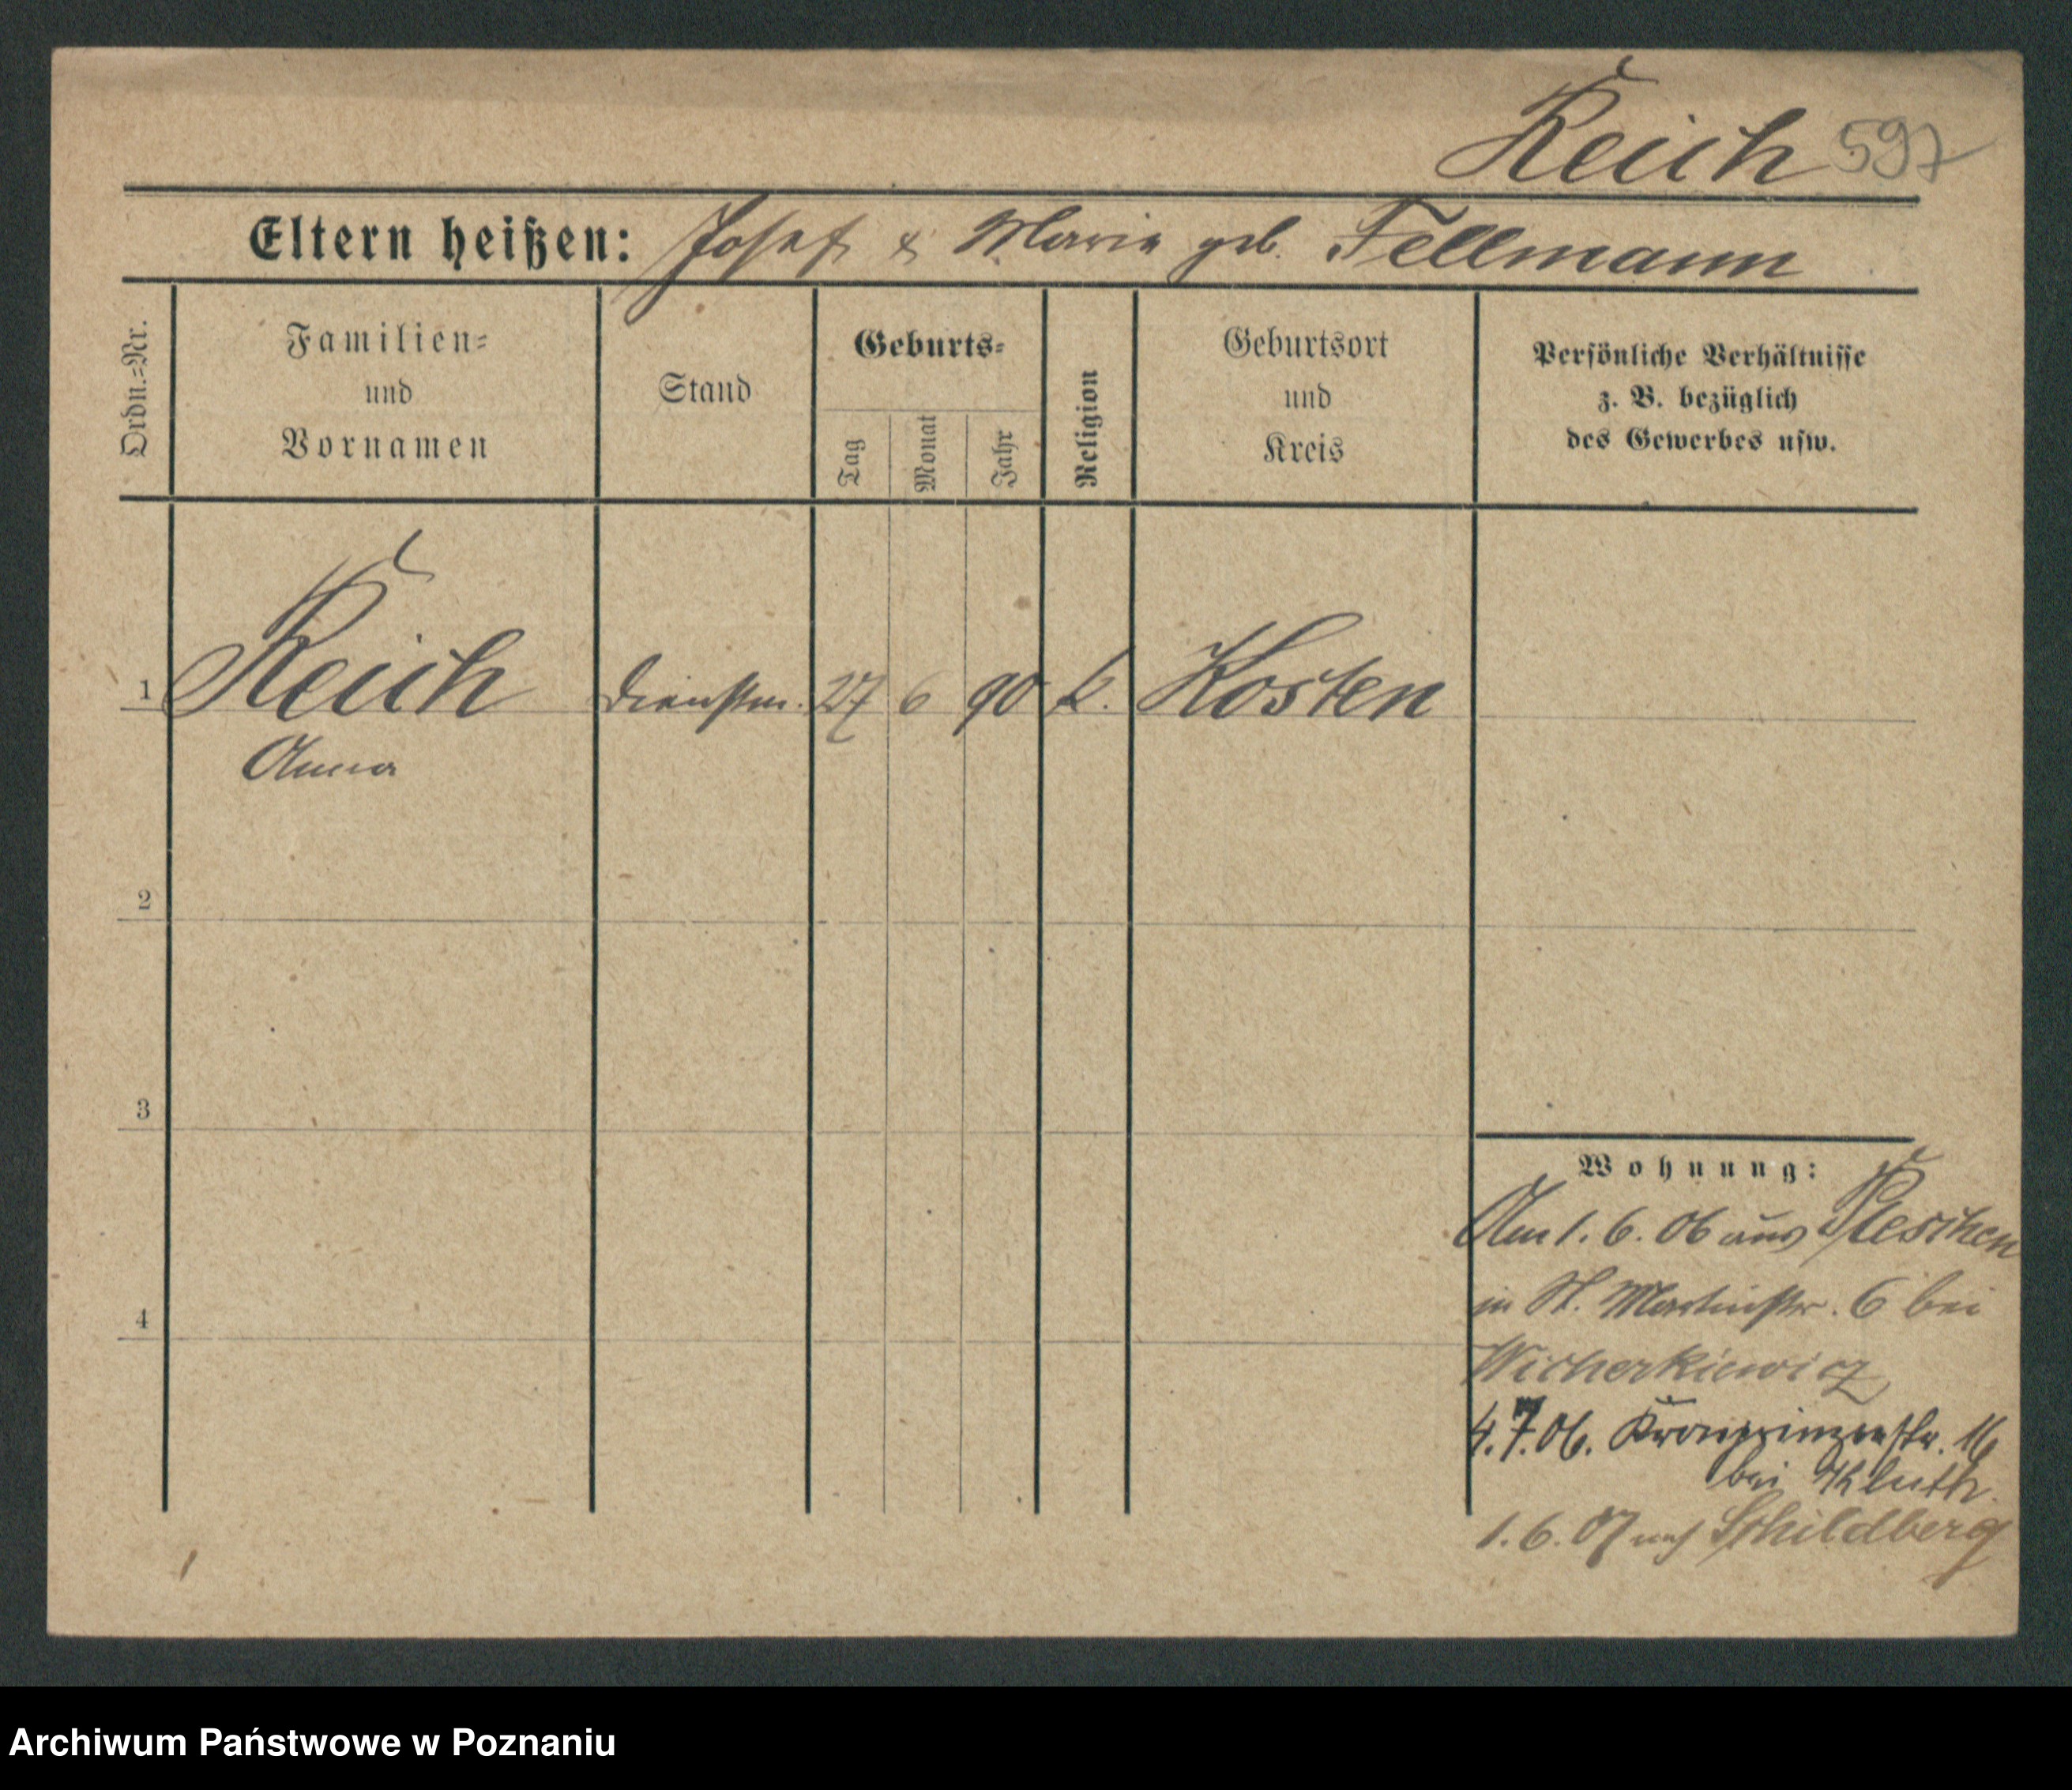 Reich 597
Eltern heißen: Josef & Marie geb. Fellmann
Ordn.-Nr.
Familien-
und
Vornamen
Stand
Geburts-
Tag
Monat
Jahr
Religion
Geburtsort
und
Kreis
Persönliche Verhältnisse
z. B. bezüglich
des Gewerbes usw.
1 Reich Dienstm. 27 6 90 k. Kosten
Anna
2
3
4
Wohnung:
Am 1. 6. 06 aus Pleschen
in St. Martinstr. 6 bei
Wicherkiewicz
4. 7. 06. Kronprinzenstr. 16
bei Kluth.
1. 6. 07 nach Schildberg
Archiwum Państwowe w Poznaniu